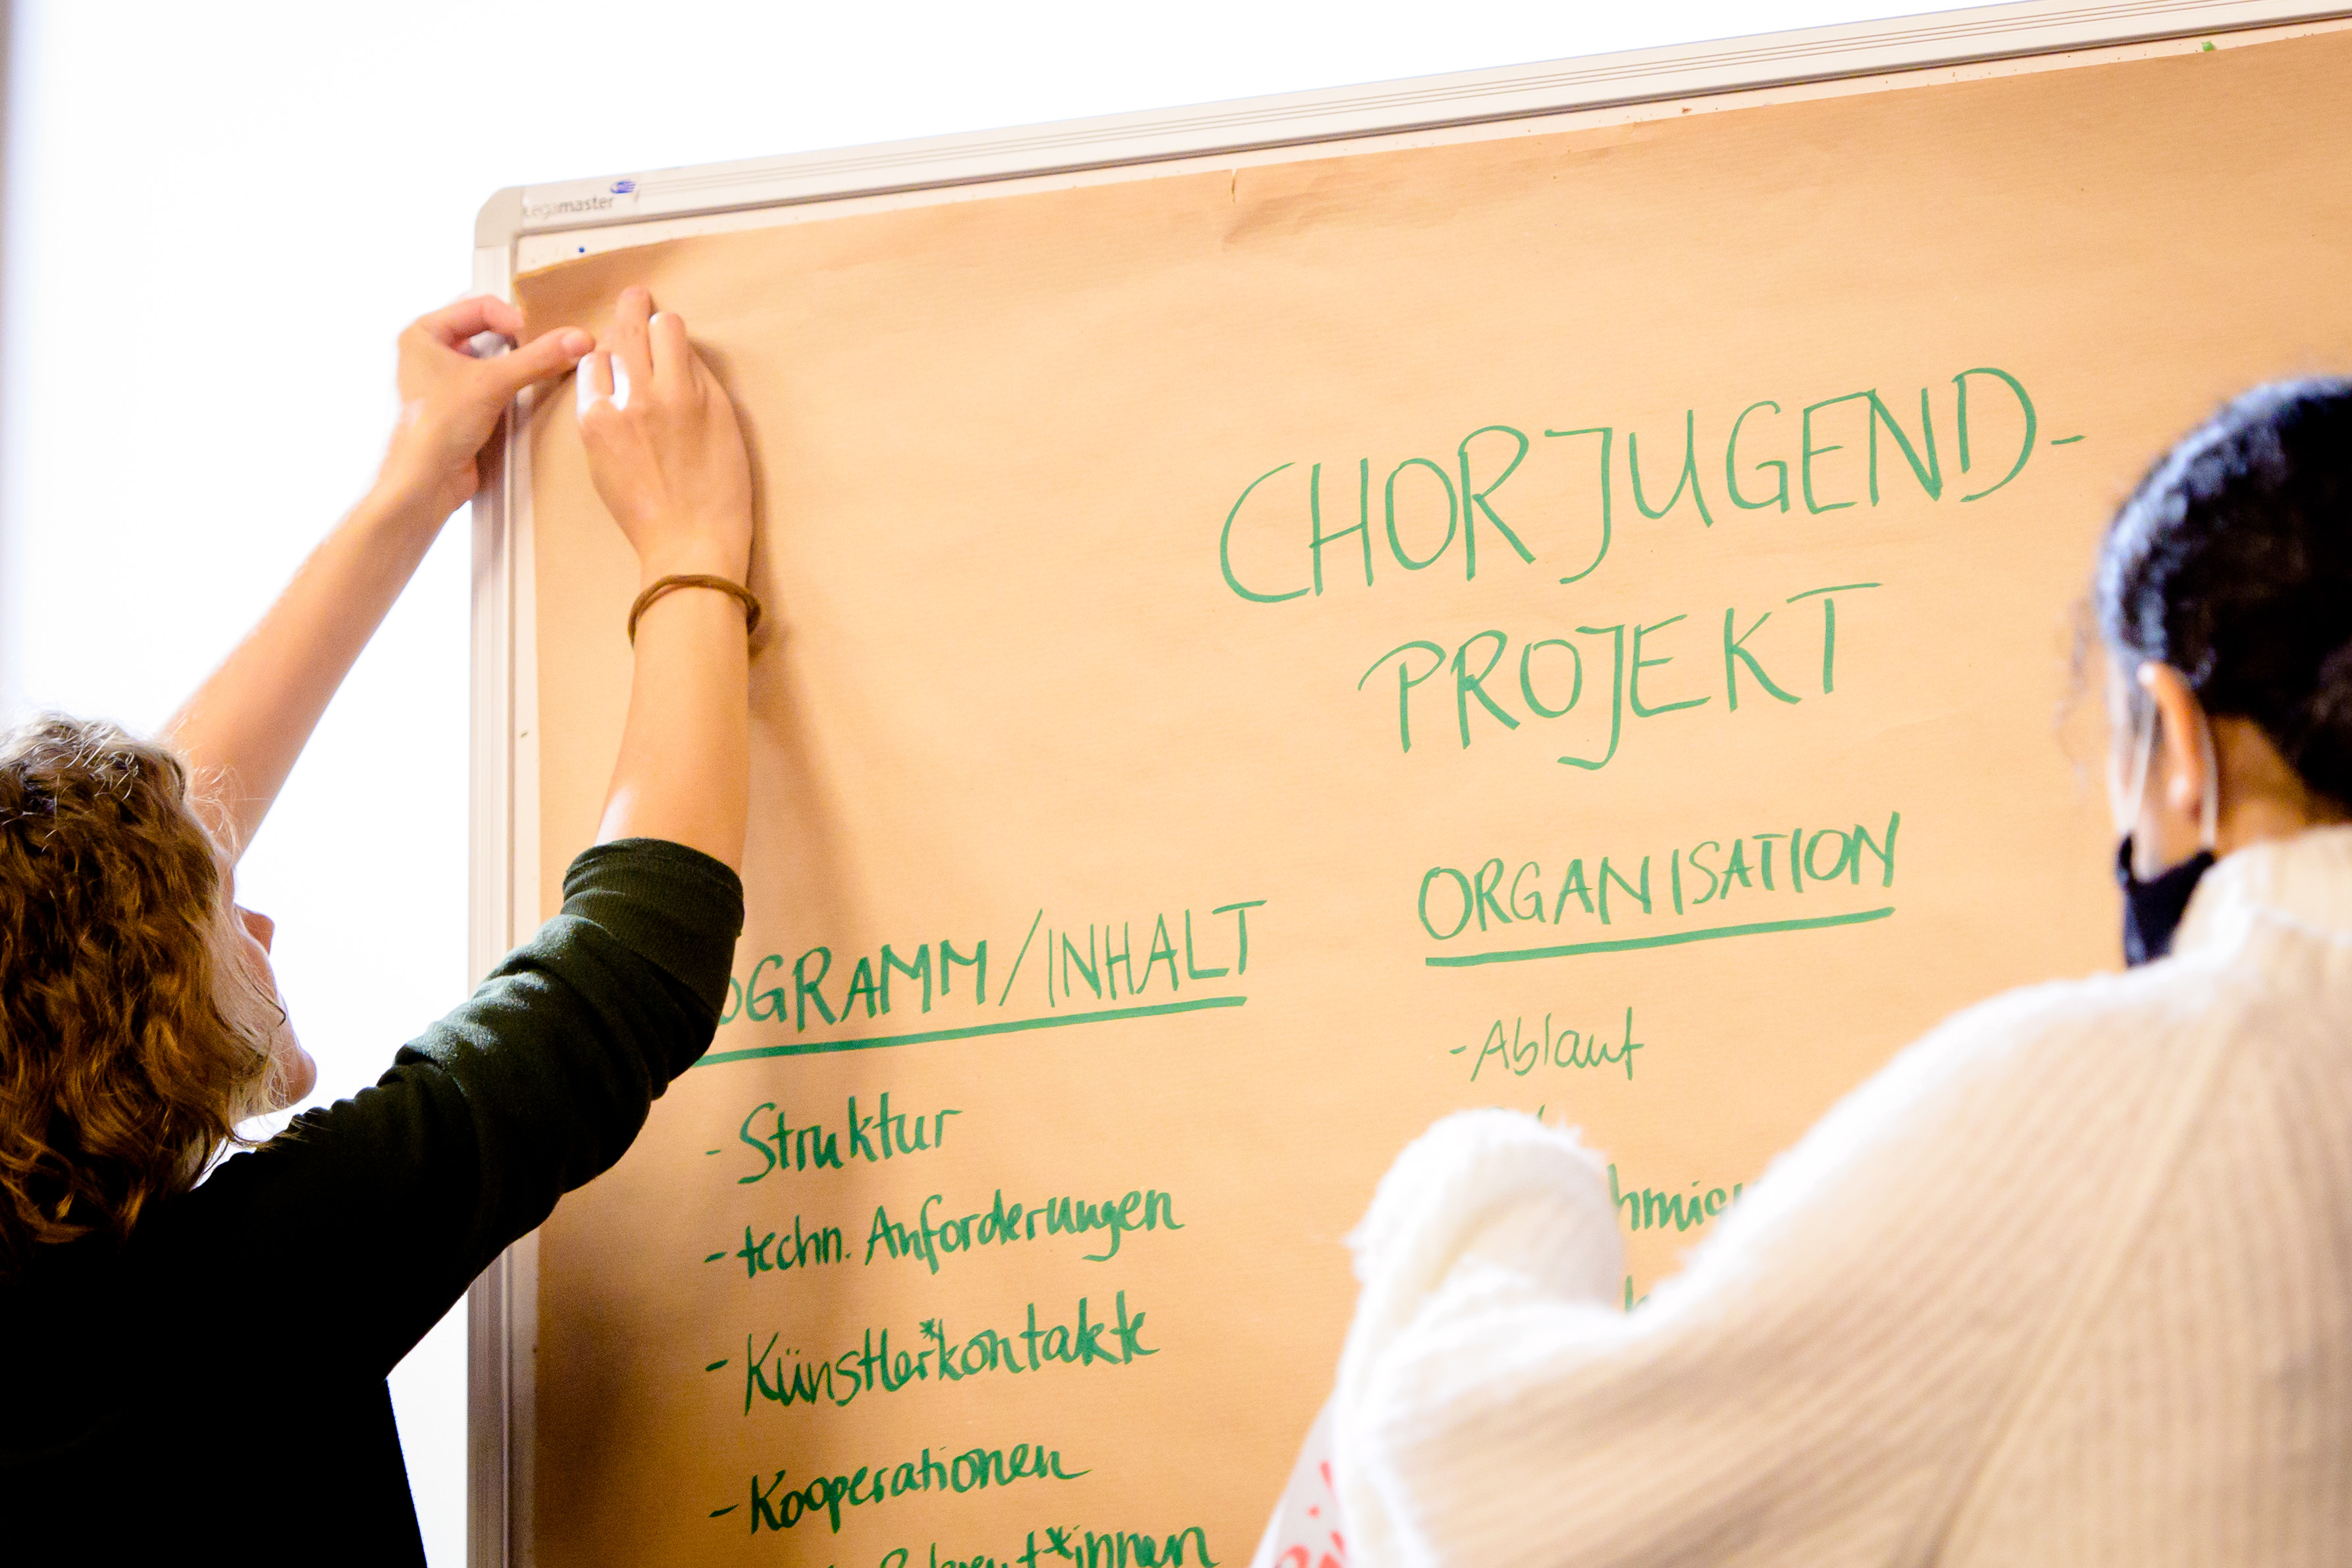 Legamaster
CHORJUGEND-
PROJEKT
OGRAMM/INHALT
- Struktur
- techn. Anforderungen
- Künstler*kontakte
- Kooperationen
ORGANISATION
- Ablauf